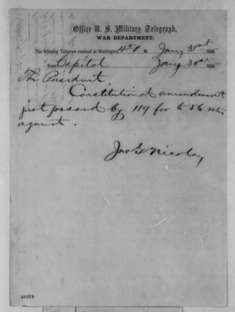 Office U. S. Military Telegraph,
WAR DEPARTMENT.
The following Telegram received at Washington, M. Jany 31st 186
From Capitol Jany 31st 186
The President.
Constitutional amendment
just passed by 119 for to 56 votes
against.
Jno G Nicolay